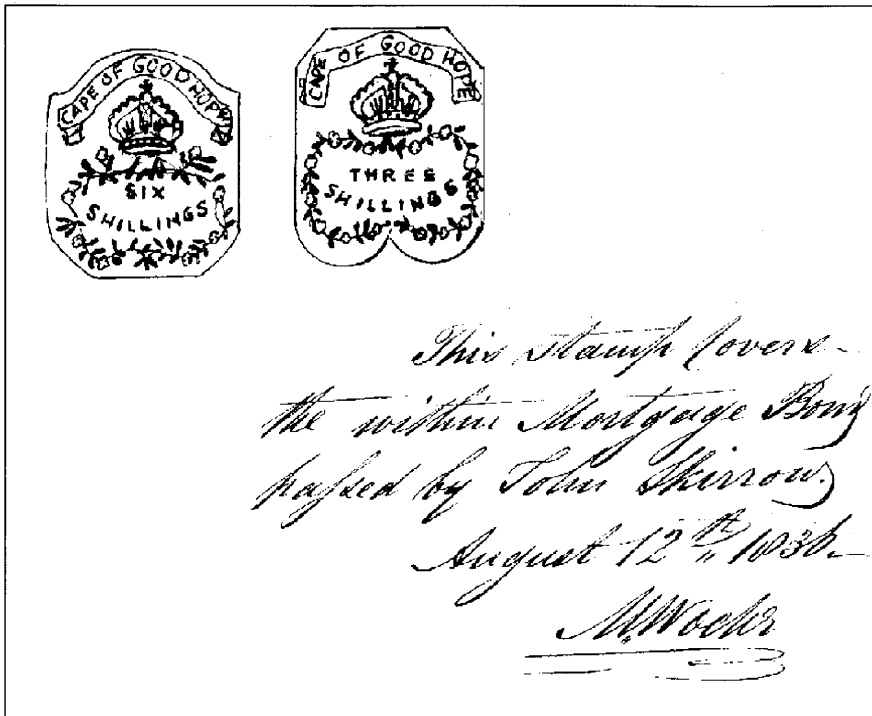 CAPE OF GOOD HOPE
SIX
SHILLINGS
CAPE OF GOOD HOPE
THREE
SHILLINGS
This Stamp Covers
the within Mortgage Bond
passed by John Skirrow.
August 12th 1836